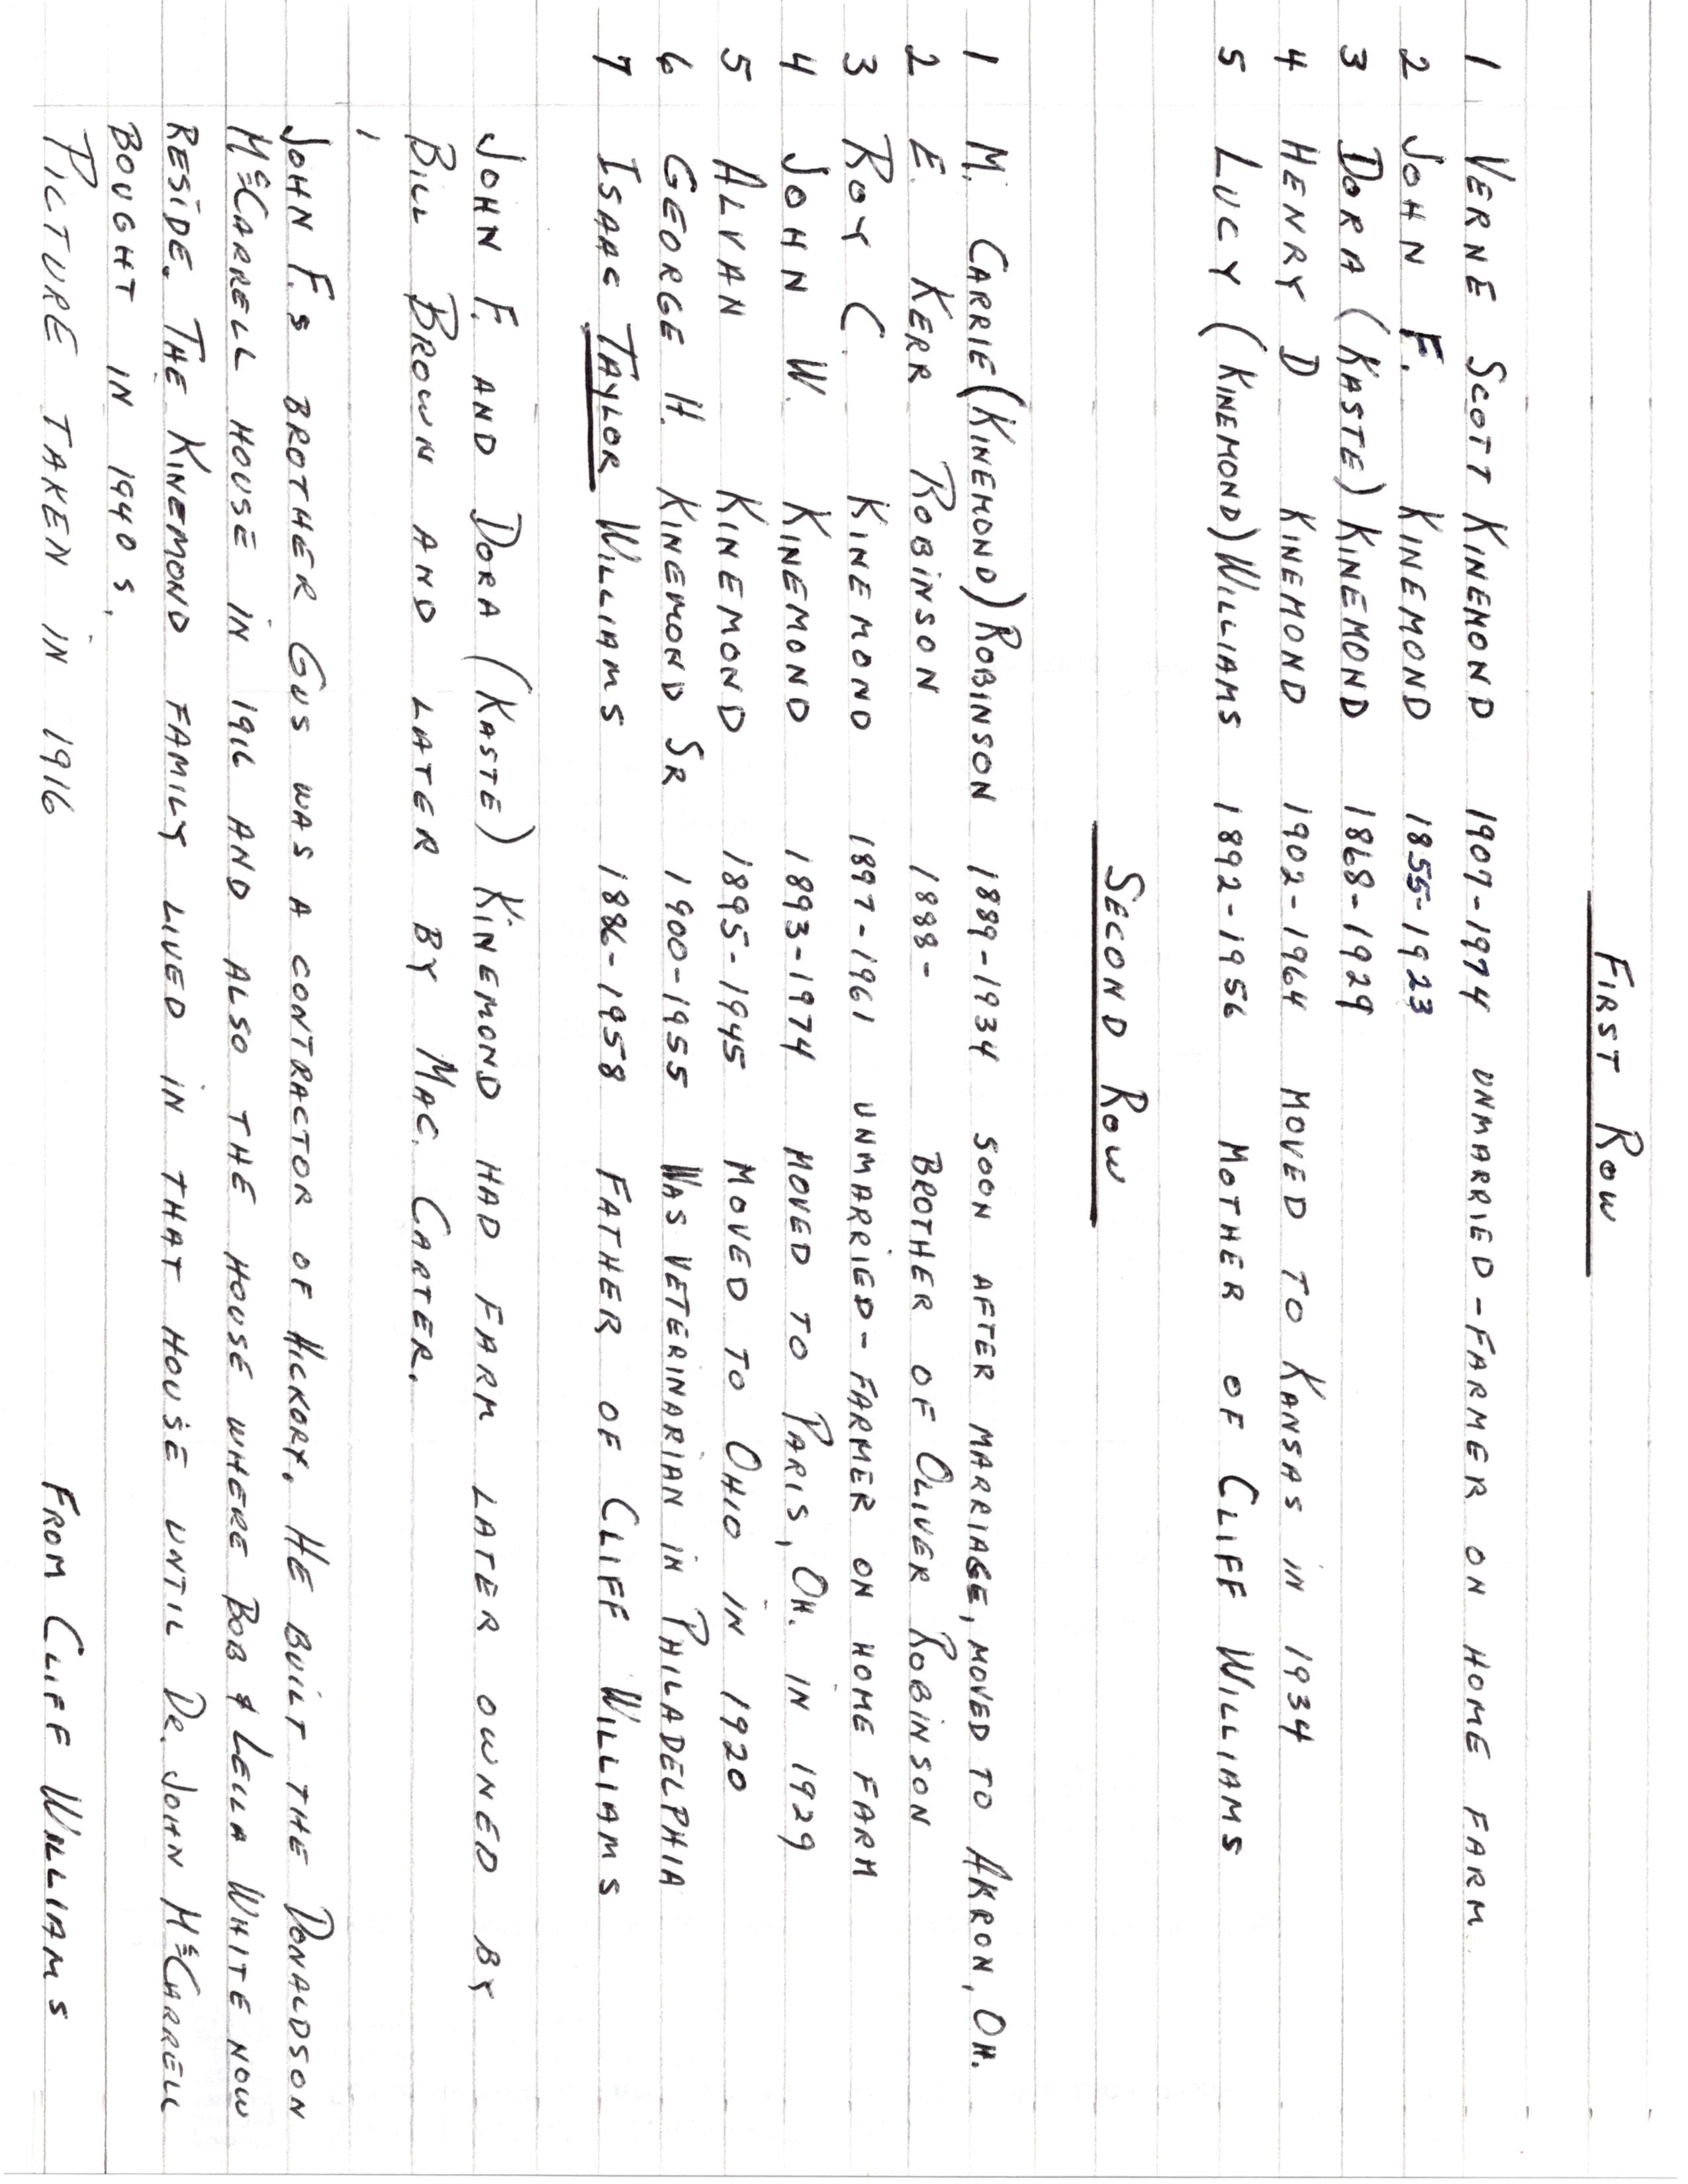 FIRST ROW
1 VERNE SCOTT KINEMOND 1907-1974 UNMARRIED-FARMER ON HOME FARM
2 JOHN F. KINEMOND 1855-1923
3 DORA (KASTE) KINEMOND 1868-1929
4 HENRY D KINEMOND 1902-1964 MOVED TO KANSAS IN 1934
5 LUCY (KINEMOND) WILLIAMS 1892-1956 MOTHER OF CLIFF WILLIAMS
SECOND ROW
1 M. CARRIE (KINEMOND) ROBINSON 1889-1934 SOON AFTER MARRIAGE, MOVED TO AKRON, OH.
2 E. KERR ROBINSON 1888- BROTHER OF OLIVER ROBINSON
3 ROY C. KINEMOND 1897-1961 UNMARRIED-FARMER ON HOME FARM
4 JOHN W. KINEMOND 1893-1974 MOVED TO PARIS, OH. IN 1929
5 ALVAN KINEMOND 1895-1945 MOVED TO OHIO IN 1920
6 GEORGE H. KINEMOND SR 1900-1955 WAS VETERINARIAN IN PHILADELPHIA
7 ISAAC TAYLOR WILLIAMS 1886-1958 FATHER OF CLIFF WILLIAMS
JOHN F. AND DORA (KASTE) KINEMOND HAD FARM LATER OWNED BY
BILL BROWN AND LATER BY MAC. CARTER.
JOHN F.S BROTHER GUS WAS A CONTRACTOR OF HICKORY. HE BUILT THE DONALDSON
McCARRELL HOUSE IN 1916 AND ALSO THE HOUSE WHERE BOB & LELLA WHITE NOW
RESIDE. THE KINEMOND FAMILY LIVED IN THAT HOUSE UNTIL DR. JOHN McCARRELL
BOUGHT IN 1940S.
PICTURE TAKEN IN 1916 FROM CLIFF WILLIAMS